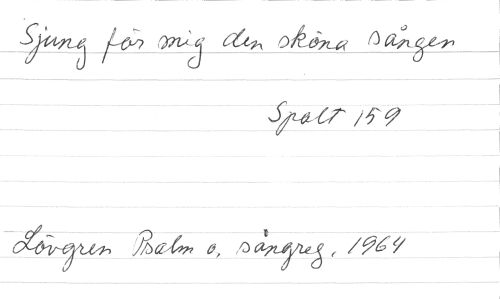 Sjung för mig den sköna sången
Spalt 159
Lövgren Psalm o. sångreg. 1964